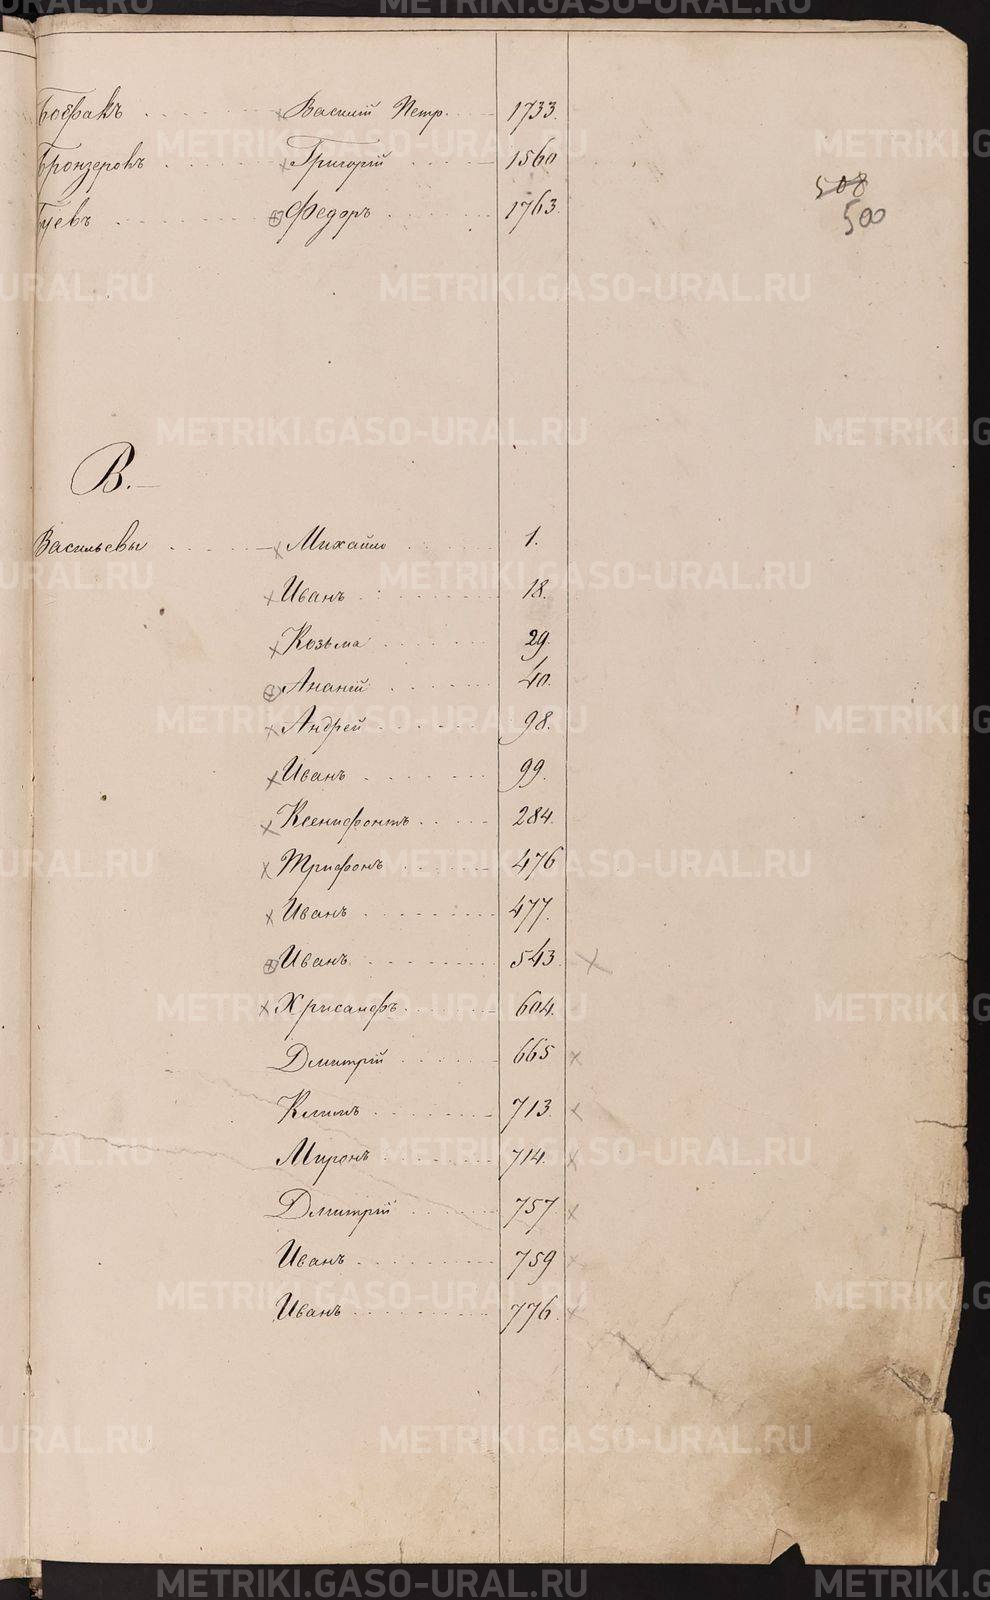 Бобракъ - - - - - - × Василій Петр. - - 1733.
Бронзеровъ - - - - - × Григорій - - - - 1560
508
Буевъ - - - - - - ⊗ Ѳедоръ - - - - 1763.
500
В.
Васильевы - - - - × Михайло - - - - 1.
× Иванъ - - - - 18.
× Козьма - - - - 29.
⊗ Ананій - - - - 40.
× Андрей - - - - 98.
× Иванъ - - - - 99.
× Ксенифонтъ - - - - 284.
× Трифонъ - - - - 476
× Иванъ - - - - 477.
⊗ Иванъ - - - - 543 ×
× Хрисанфъ - - - - 604.
Дмитрій - - - - 665 ×
Климъ - - - - 713. ×
Миронъ - - - - 714. ×
Дмитрій - - - - 757 ×
Иванъ - - - - 759 ×
Иванъ - - - - 776. ×
METRIKI.GASO-URAL.RU